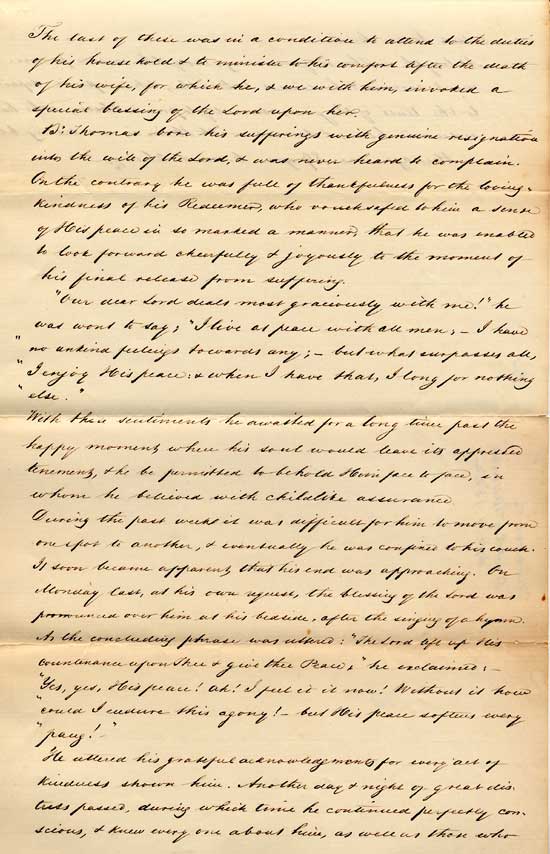 The last of these was in a condition to attend to the duties
of his household & to minister to his comfort after the death
of his wife, for which he, & we with him, invoked a
special blessing of the Lord upon her.
Br. Thomas bore his sufferings with genuine resignation
into the will of the Lord, & was never heard to complain.
On the contrary he was full of thankfulness for the loving-
kindness of his Redeemer, who vouchsafed to him a sense
of His peace in so marked a manner, that he was enabled
to look forward cheerfully & joyously to the moment of
his final release from suffering.
"Our dear Lord deals most graciously with me!" he
was wont to say; "I live at peace with all men; – I have
" no unkind feelings towards any; – but what surpasses all,
" I enjoy His peace: & when I have that, I long for nothing
" else."
With these sentiments he awaited for a long time past the
happy moment, where his soul would leave its oppressed
tenement, & he be permitted to behold Him face to face, in
whom he believed with childlike assurance
During the past weeks it was difficult for him to move from
one spot to another, & eventually he was confined to his couch.
It soon became apparent that his end was approaching. On
Monday last, at his own request, the blessing of the Lord was
pronounced over him at his bedside, after the singing of a hymn.
As the concluding phrase was uttered: "The Lord lift up His
countenance upon Thee & give thee Peace;" he exclaimed: –
"Yes, yes, His peace! Ah! I feel it is now! Without it how
"could I endure this agony! – but His peace softens every
"pang!"
He uttered his grateful acknowledgments for every act of
kindness shown him. Another day & night of great dis-
tress passed, during which time he continued perfectly con-
scious, & knew every one about him, as well as those who